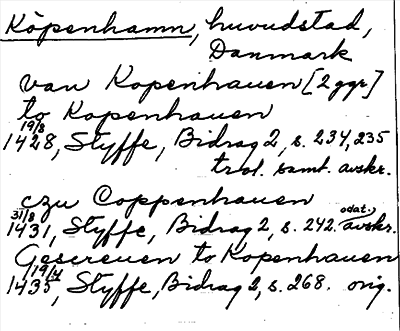 Köpenhamn, huvudstad,
Danmark
van Kopenhauen [2 ggr]
to Kopenhauen
19/8 1428, Styffe, Bidrag 2, s. 234, 235
trol. samt. avskr.
czu Coppenhauen
31/8 1431, Styffe, Bidrag 2, s. 242. odat. avskr.
Gesereuen to Kopenhauen
19/4 1435, Styffe, Bidrag 2, s. 268. orig.